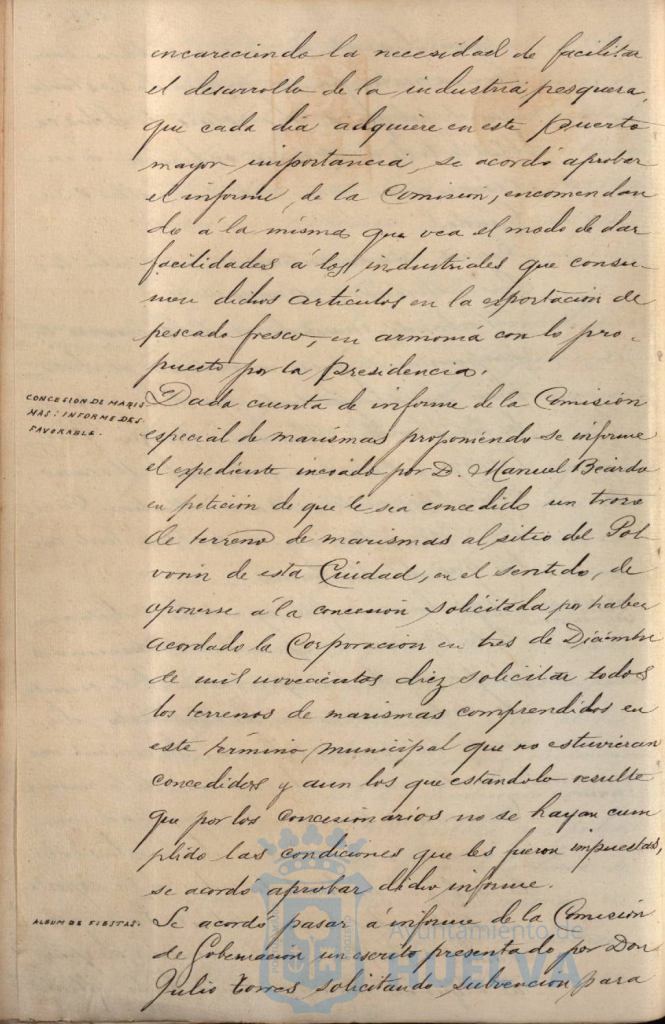 encareciendo la necesidad de facilitar
el desarrollo de la industria pesquera,
que cada dia adquiere en este Puerto
mayor importancia, se acordó aprobar
el informe, de la Comision, encomendan
do á la misma que vea el modo de dar
facilidades á los industriales que consu-
men dichos artículos en la exportación de
pescado fresco, en armonía con lo pro-
puesto por la Presidencia.
CONCESION DE MARIS
MAS: INFORME DES
FAVORABLE.
Dada cuenta de informe de la Comisión
especial de marismas proponiendo se informe
el expediente incoado por D. Manuel
en petición de que le sea concedido un trozo
de terreno de marismas al sitio del Pol
vorin de esta Ciudad, en el sentido, de
oponerse á la concesion solicitada, por haber
acordado la Corporacion en tres de Diciembre
de mil novecientos diez solicitar todos
los terrenos de marismas comprendidos en
este término municipal que no estuvieran
concedidos y aun los que estándolo resulte
que por los concesionarios no se hayan cum
plido las condiciones que les fueron impuestas,
se acordó aprobar dicho informe.
ALBUM DE FIESTAS.
Se acordó pasar á informe de la Comisión
de Gobernacion un escrito presentado por Don
Julio Torres solicitando subvencion para
Ayuntamiento de
HUELVA